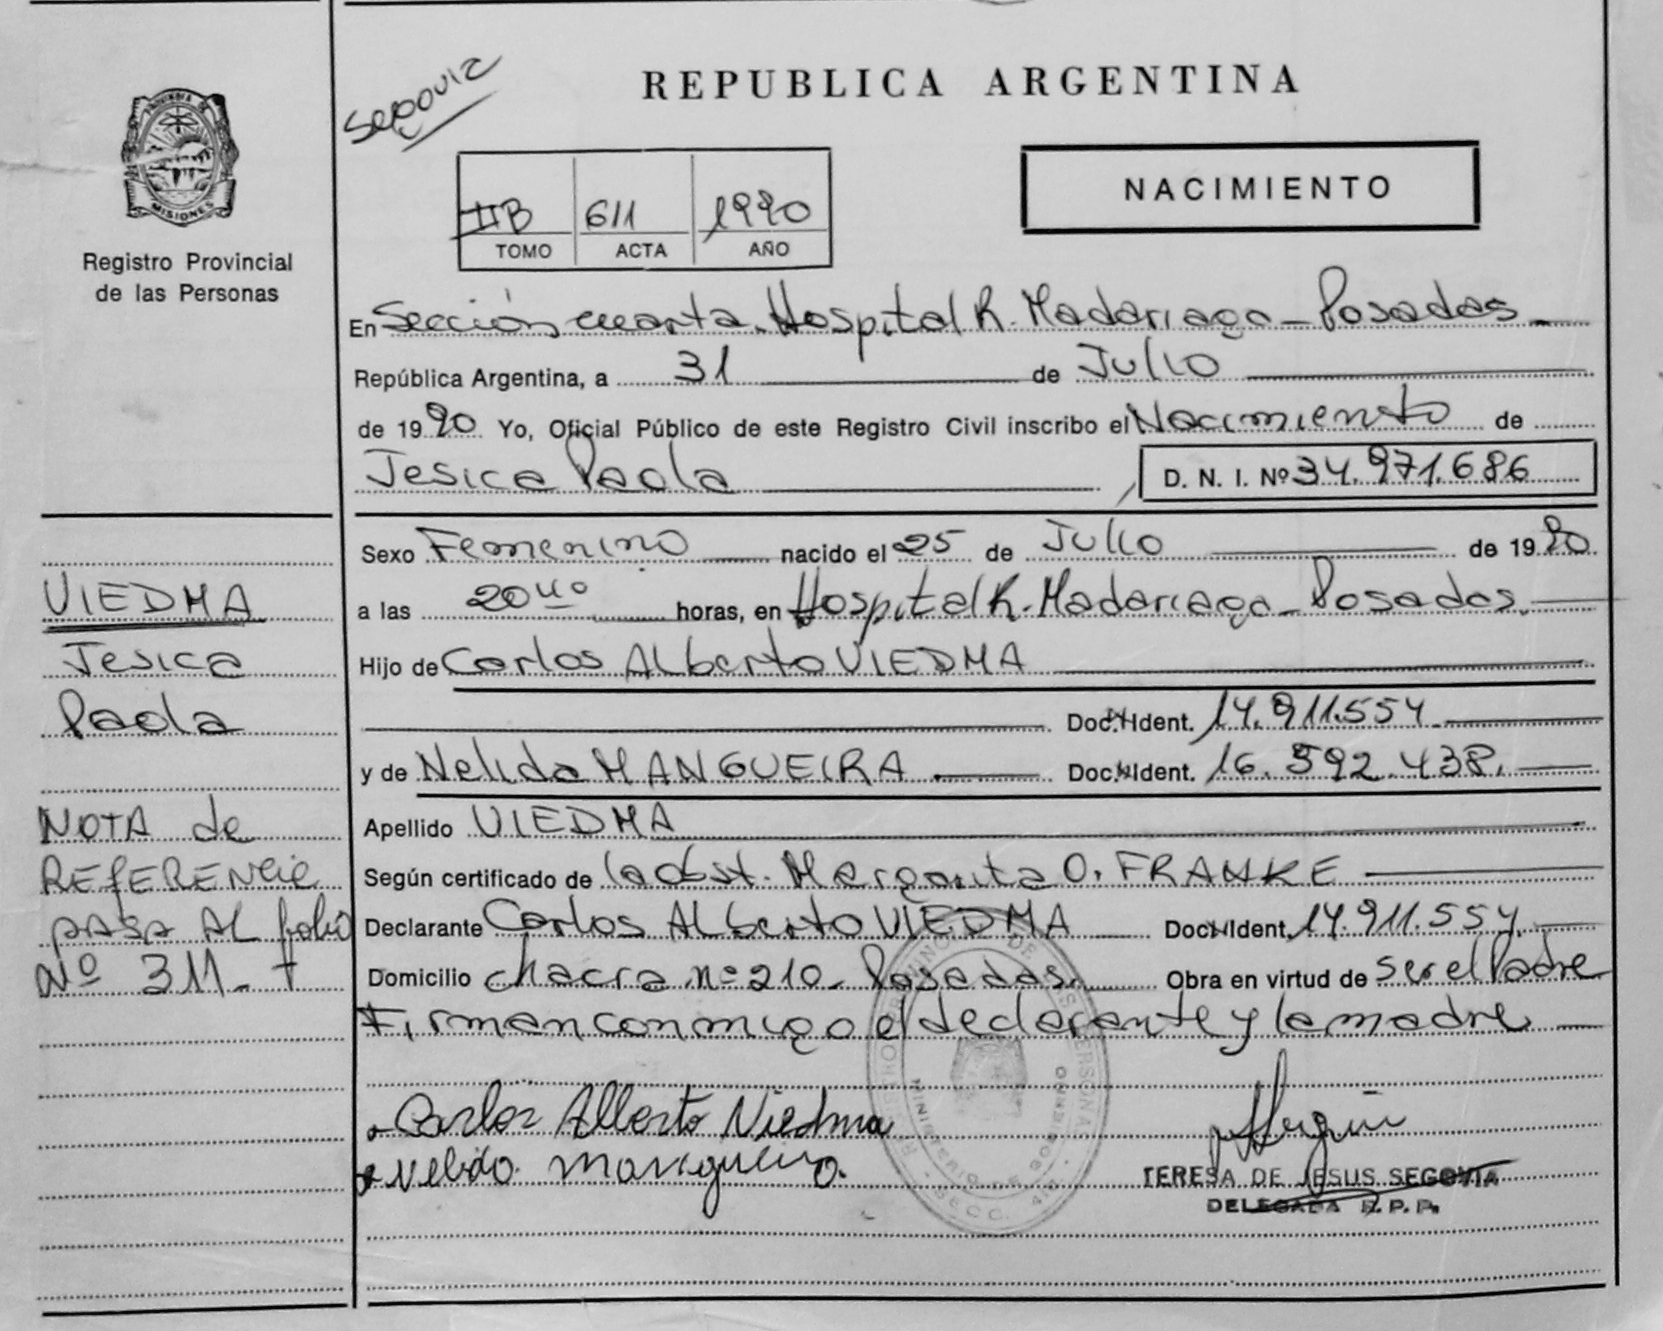 REPUBLICA ARGENTINA
NACIMIENTO
IIB 611 1990
TOMO ACTA AÑO
MISIONES
Registro Provincial
de las Personas
En Sección cuarta. Hospital R. Madariaga - Posadas
República Argentina, a 31 de Julio
de 1990 Yo, Oficial Público de este Registro Civil inscribo el Nacimiento de
Jesica Paola D. N. I. Nº 34.971.686
Sexo Femenino nacido el 25 de Julio de 1990
a las 20 40 horas, en Hospital R. Madariaga - Posadas.
Hijo de Carlos ALberto VIEDMA
Doc. Ident. 14.911.554
y de Nelida MANGUEIRA Doc. Ident. 16.592.438.
Apellido VIEDMA
Según certificado de la obst. Margarita O. FRANKE
Declarante Carlos ALberto VIEDMA Doc. Ident. 14.911.554.
Domicilio chacra nº 210 - Posadas. Obra en virtud de ser el Padre
Firman conmigo el declarante y la madre
Carlos Alberto Viedma
Nelida Mangueira
TERESA DE JESUS SEGOVIA
DELEGADA R.P.P.
VIEDMA
Jesica
Paola
NOTA de
REFERENCIA
PASA AL folio
Nº 311.-
MINISTERIO DE GOBIERNO